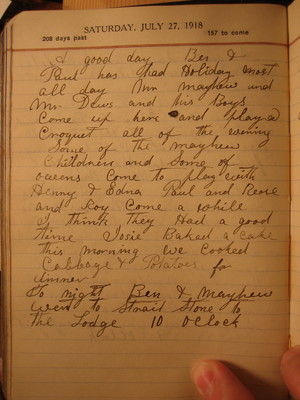 SATURDAY, JULY 27, 1918
208 days past 157 to come
A good day Ben &
Paul has Had Holiday most
all day Mr mayhew and
Mr Dews and his Boys
Come up here and played
Croquet all of the evening
Some of the mayhew
Children and Some of
owens Come to play with
Henny & Edna Paul and Reese
and Roy Come a while
I think they Had a good
time Josie Baked a cake
this morning we Cooked
Cabbage & Potatoes for
dinner
To night Ben & Mayhew
went to Strait Stone to
the Lodge 10 oClock